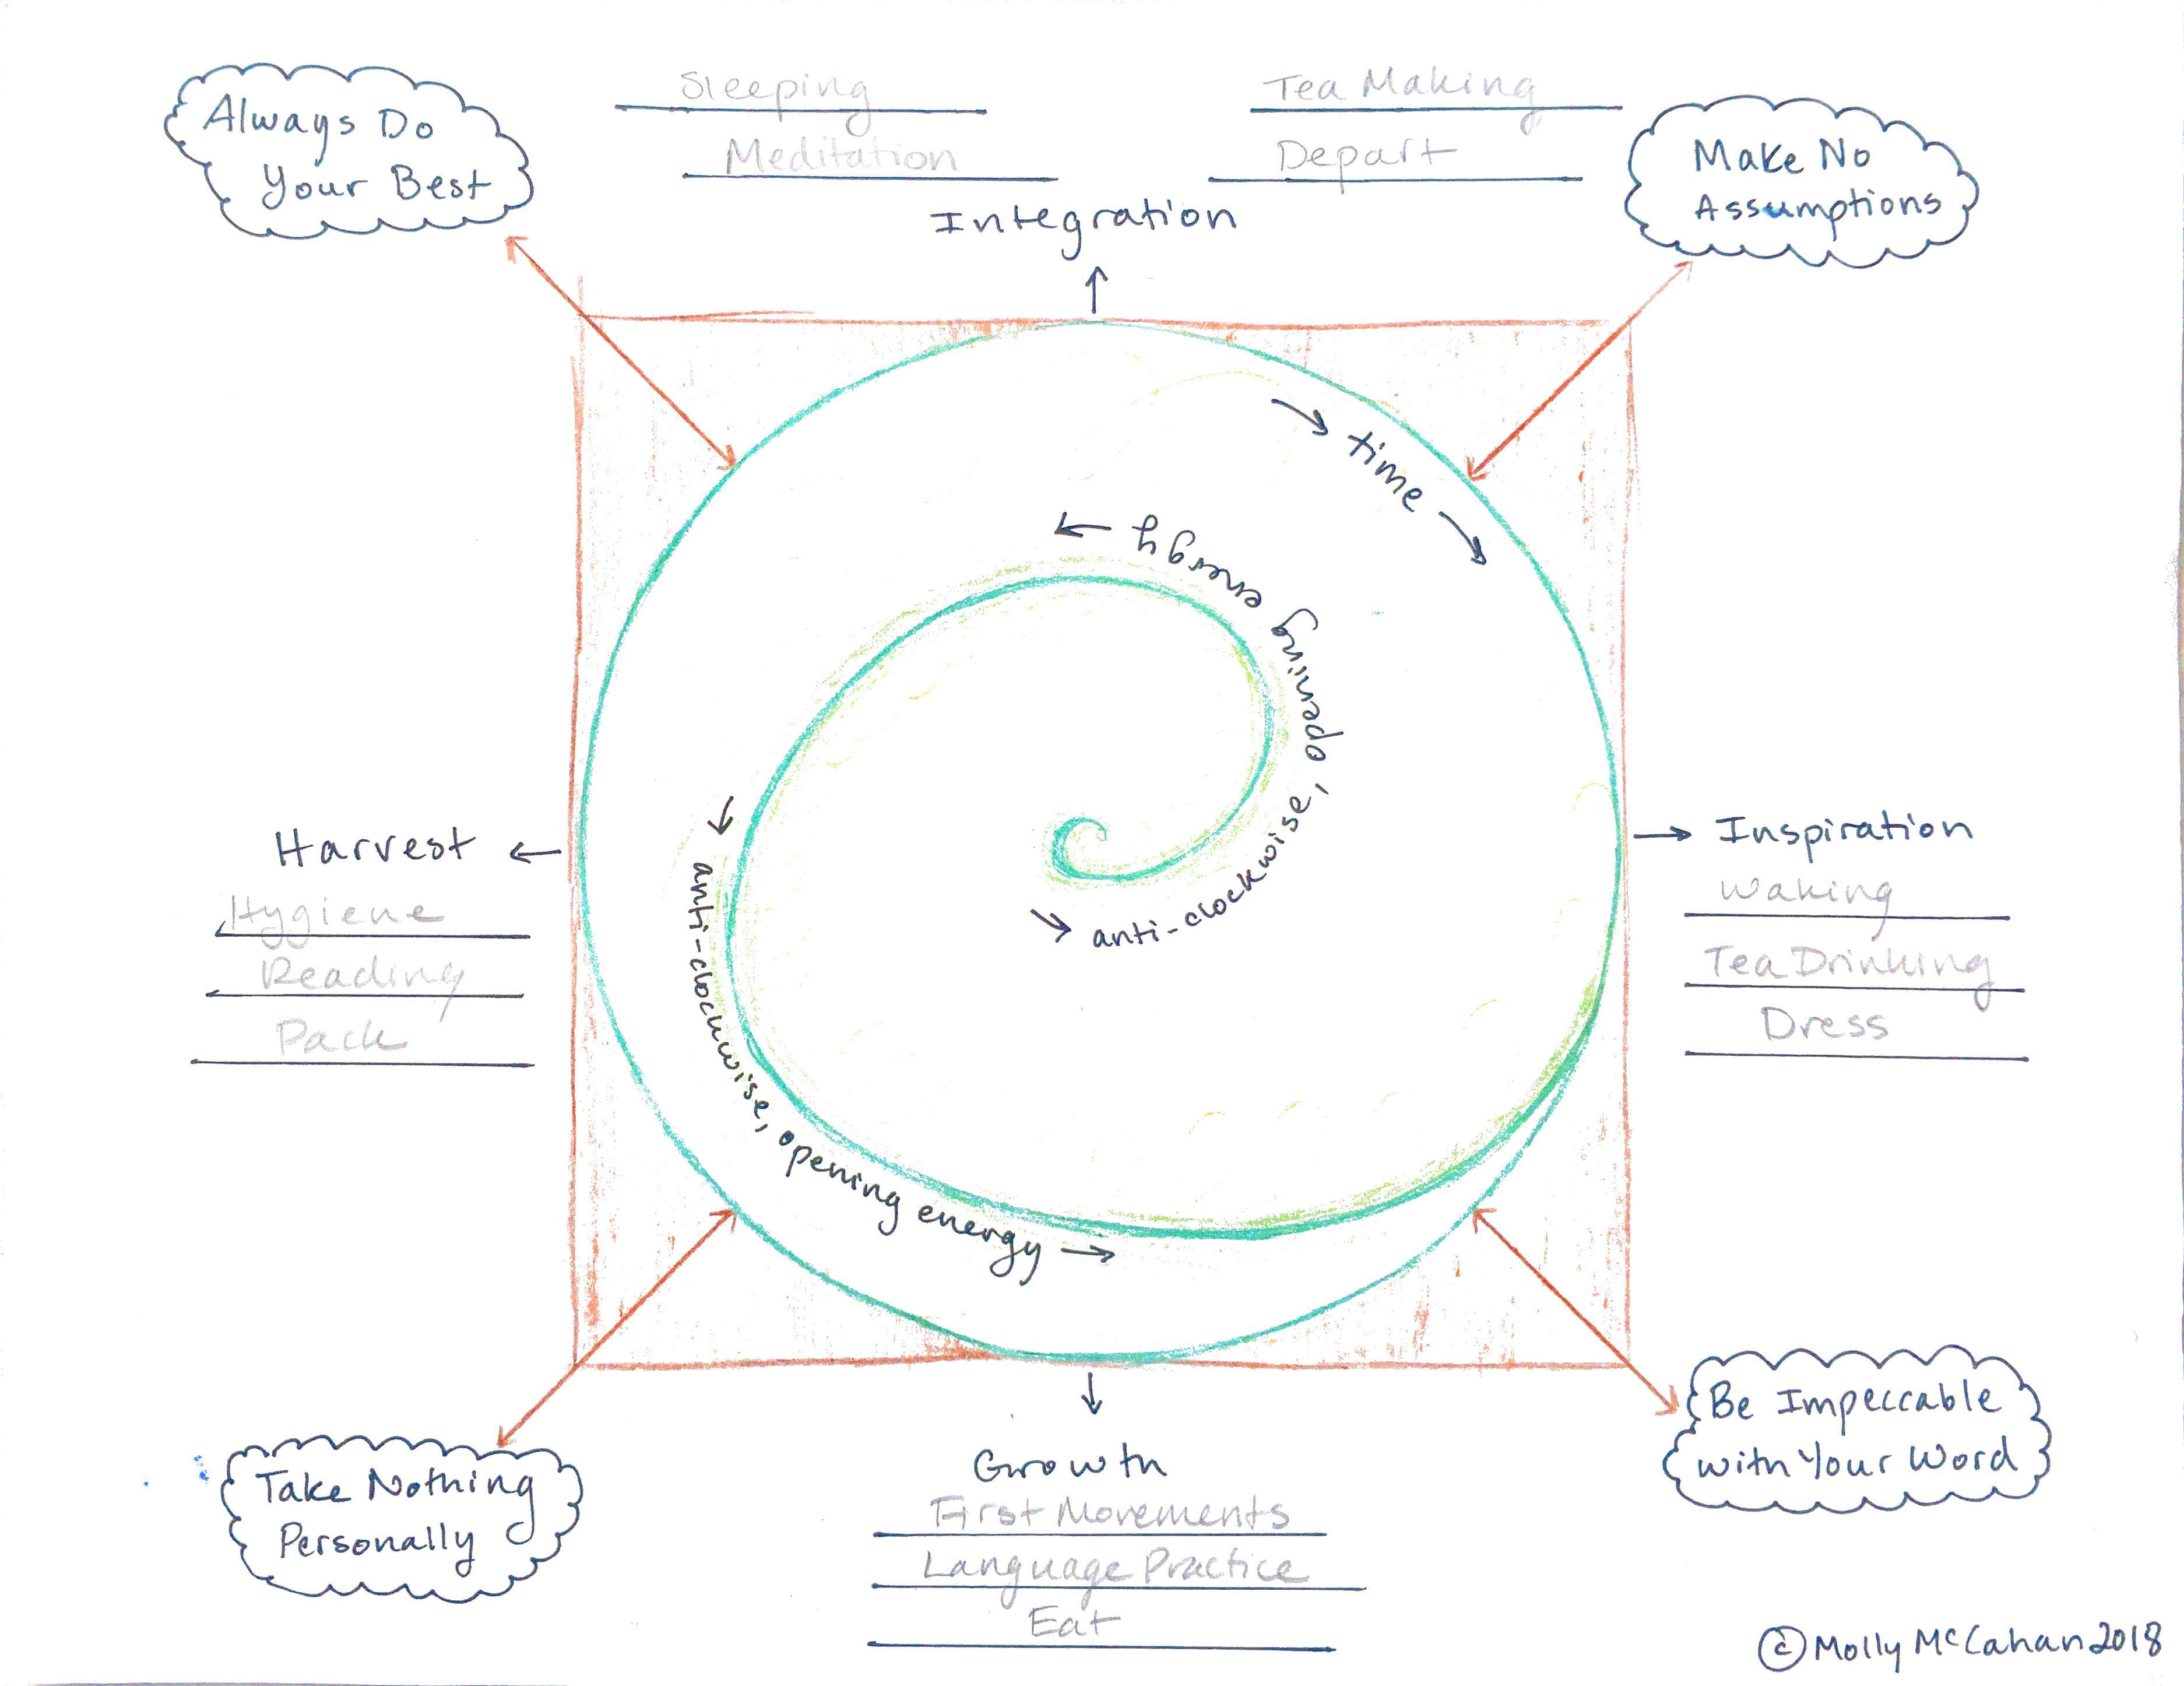 Always Do
Your Best
Sleeping
Meditation
Tea Making
Depart
Make No
Assumptions
Integration
time
anti-clockwise, opening energy
anti-clockwise, opening energy
Harvest
Hygiene
Reading
Pack
Inspiration
Waking
Tea Drinking
Dress
Take Nothing
Personally
Growth
First Movements
Language Practice
Eat
Be Impeccable
with Your Word
© Molly McCahan 2018